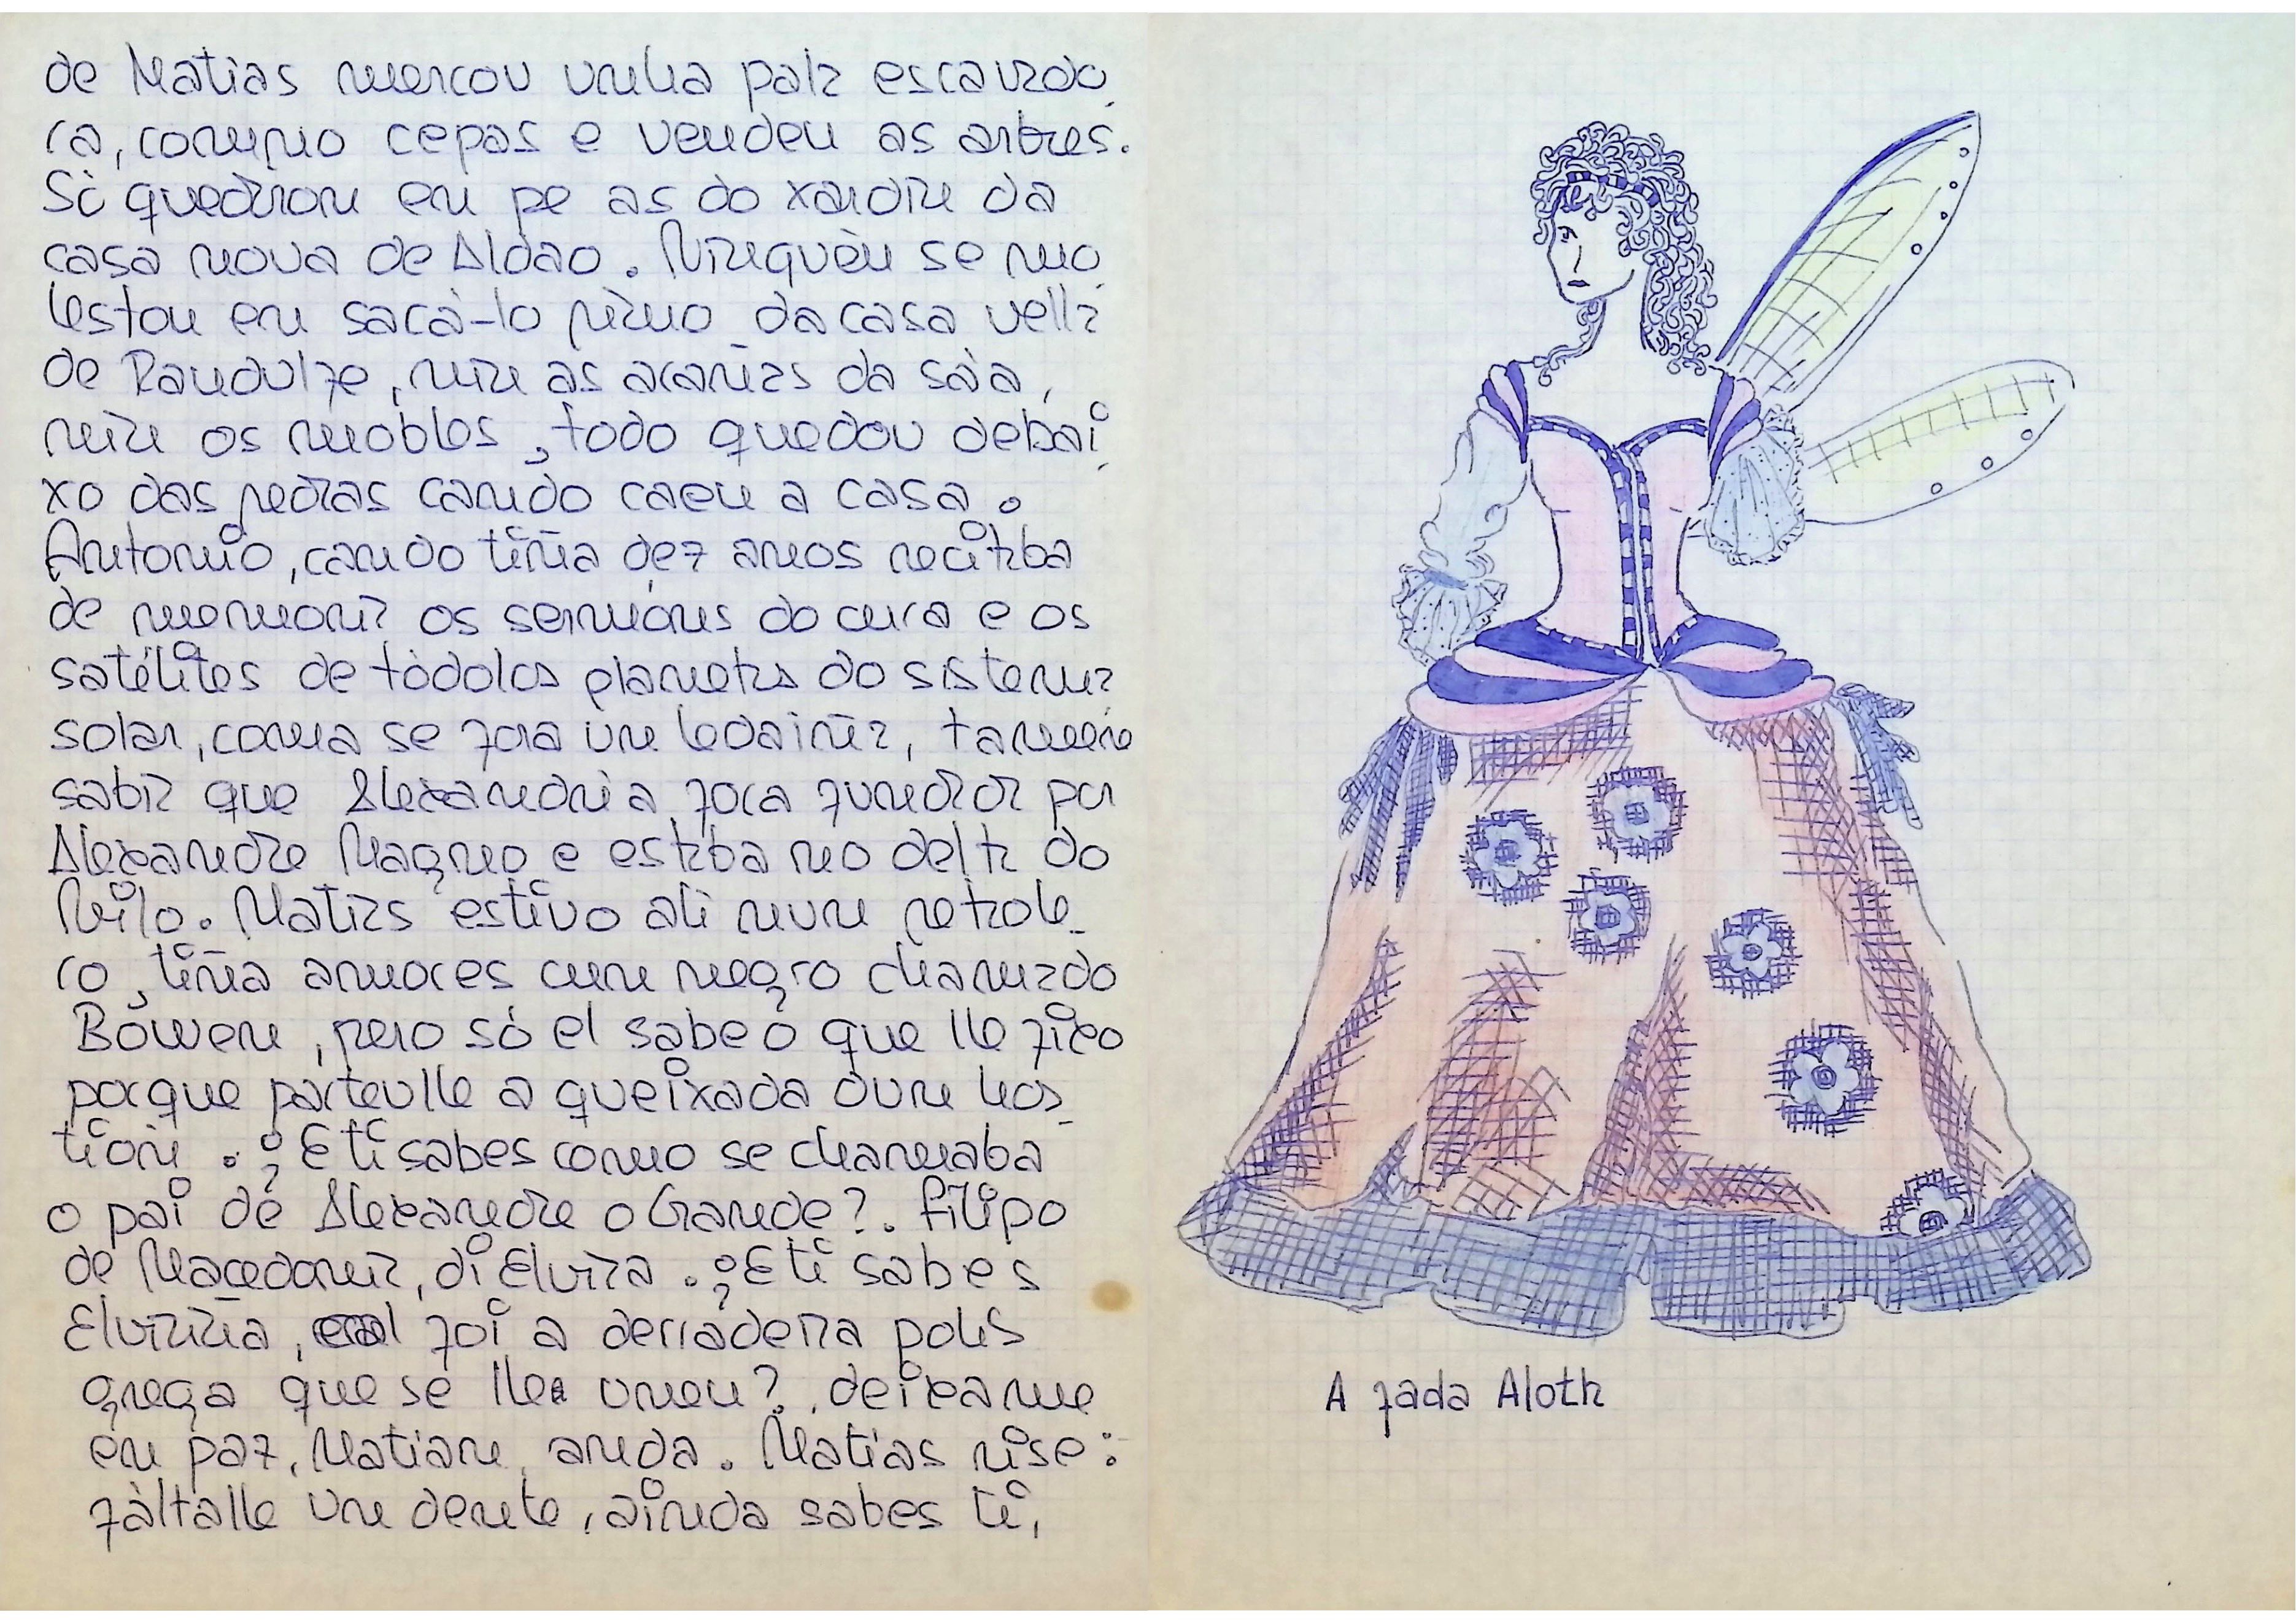 de Matias mercou unha pala escavado_
ra, comprio cepas e vendeu as arbres.
Sò quedaron en pe as do xardin da
casa nova de Aldao. Ninguèn se mo_
lestou en sacá-lo piano da casa vella
de Randulfe, nin as arañas da sala,
nin os mobles, todo quedou debai_
xo das pedras cando caeu a casa.
Antonio, cando tiña dez anos recitaba
de memoria os sermóns do cura e os
satélites de tòdolos planetas do sistema
solar, coma se fora un ledaiña, tamén
sabia que Alexandria fora fundada por
Alexandre Magno e estaba no delta do
Nilo. Matias estivo ali nun petrole_
ro, tiña amores cun negro chamado
Bówen, pero só el sabe o que lle fixo
porque parteulle a queixada dun hos_
tión. ¿E ti sabes como se chamaba
o pai de Alexandre o Grande?. Filipo
de Macedonia, di Elvira. ¿E ti sabes
Elviriña, cal foi a derradeira polis
grega que se lle uneu?. deixame
en paz, Matian, anda. Matias rise:
fàltalle un dente, ainda sabes ti,
A fada Aloth